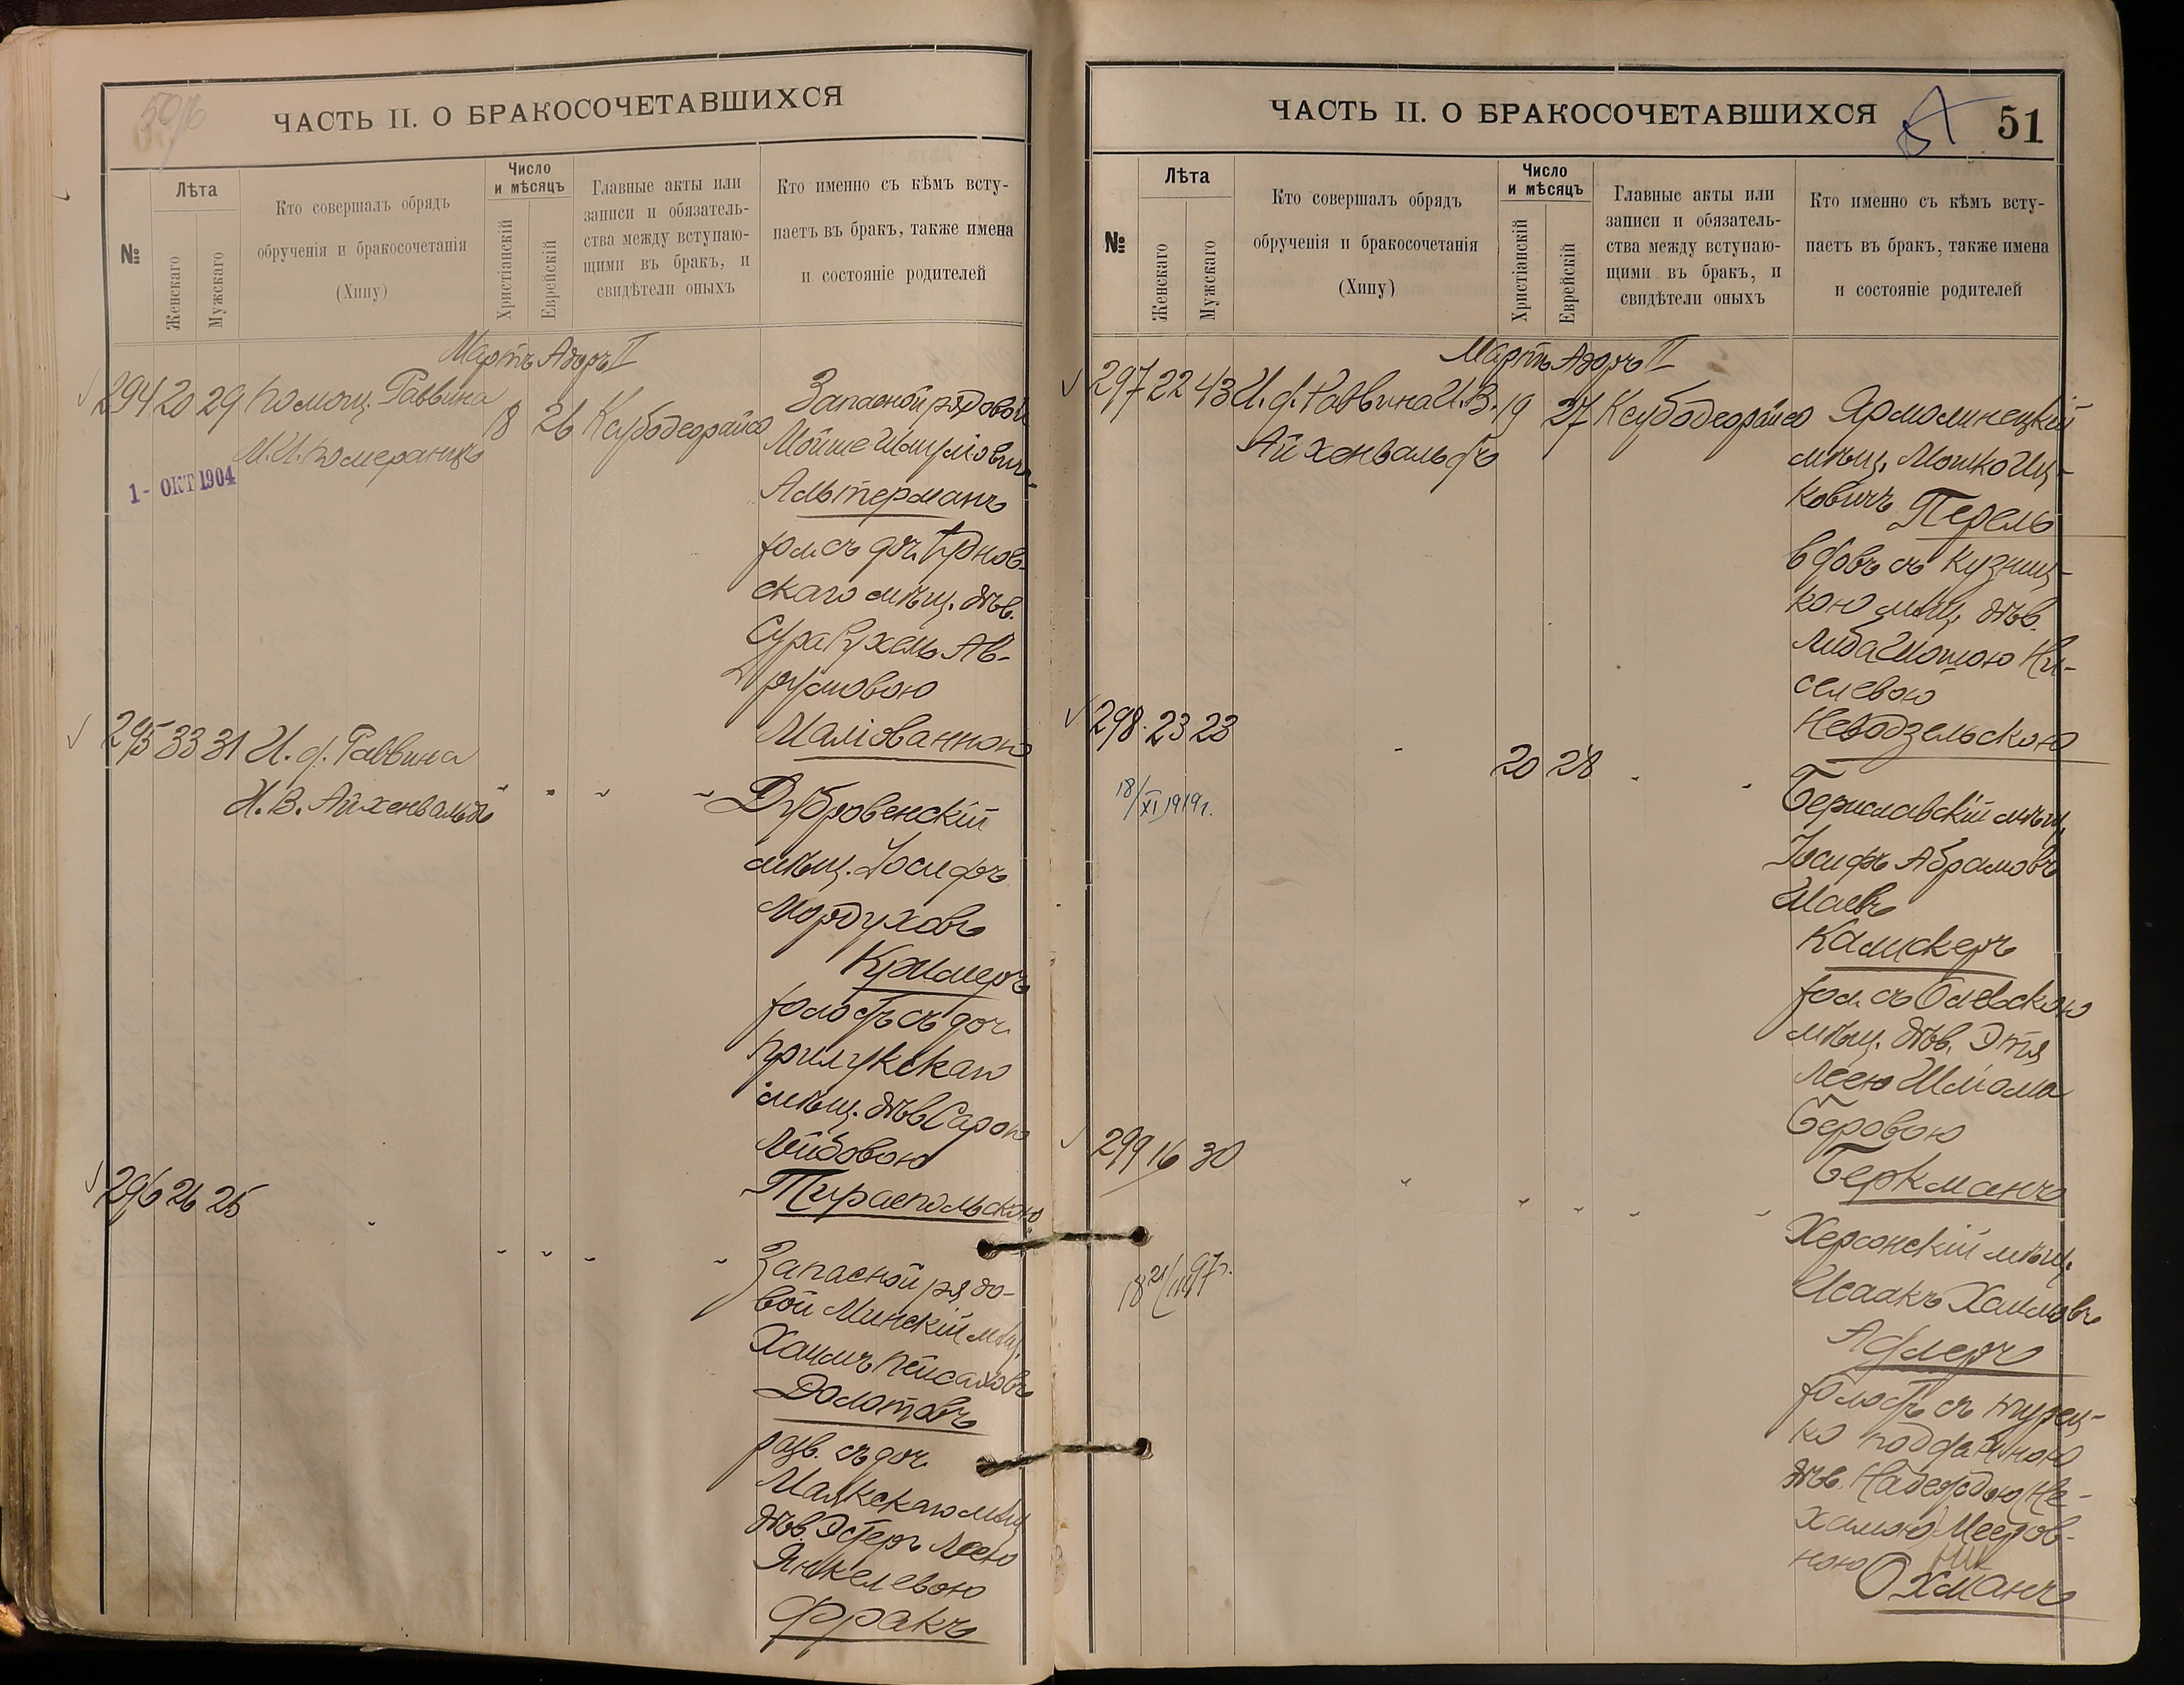 ЧАСТЬ II. О БРАКОСОЧЕТАВШИХСЯ
№
Лѣта
Женскаго
Мужскаго
Кто совершалъ обрядъ
обрученія и бракосочетанія
(Хипу)
Число
и мѣсяцъ
Христіанскій
Еврейскій
Главные акты или
записи и обязатель-
ства между вступаю-
щими въ бракъ, и
свидѣтели оныхъ
Кто именно съ кѣмъ всту-
паетъ въ бракъ, также имена
и состояніе родителей
Мартъ Адоръ II
294 20 29 Помощ. Раввина
М. И. Померанцъ
18 26 Ксубодеорайсо
1 - ОКТ 1904
Запасной рядовой
Мойше Шмулович
Альтерманъ
хол. съ доч.
скаго мѣщ. дѣв.
Сура Рухель Ав-
румовою
Маліованною
295 33 31 И. д. Раввина
И. В. Айхенвальдъ
" " " "
Дубровенскій
мѣщ. Іосифъ
Мордуховъ
Кримеръ
холостъ съ доч.
Прилукскаго
мѣщ. дѣв. Сарою
Лейбовою
Тираспольскою
296 26 25
" " " " "
Запасной рядо-
вой Минскій мѣщ.
Хаимъ Пейсаховъ
Долотовъ
разв. съ доч.
Маякскаго мѣщ
дѣв. Эстеръ Леею
Янкелевою
Фракъ
ЧАСТЬ II. О БРАКОСОЧЕТАВШИХСЯ
51
№
Лѣта
Женскаго
Мужскаго
Кто совершалъ обрядъ
обрученія и бракосочетанія
(Хипу)
Число
и мѣсяцъ
Христіанскій
Еврейскій
Главные акты или
записи и обязатель-
ства между вступаю-
щими въ бракъ, и
свидѣтели оныхъ
Кто именно съ кѣмъ всту-
паетъ въ бракъ, также имена
и состояніе родителей
Мартъ Адоръ II
297 22 43 И. д. Раввина И. В.
Айхенвальдъ
19 27 Ксубодеорайсо
Ярмолинецкій
мѣщ. Мошко Иц-
ковичъ Перель
вдовъ съ Кузниц-
кою мѣщ. дѣв.
Ни-
селевою
298. 23 23
" 20 28 " "
18/XI 1919 г.
Бериславскій мѣщ.
Іосифъ Абрамовъ
Шаевъ
Камскеръ
хол. съ Олевскою
мѣщ. дѣв. Этя
Леею Шлиома
Беровою
Беркманъ
299 16 30
" " " " "
Херсонскій мѣщ.
Исаакъ Хаимовъ
Адлеръ
холостъ съ турец-
ко подданною
дѣв. Надеждою (Не-
хамою) Мееров-
ною Охманъ